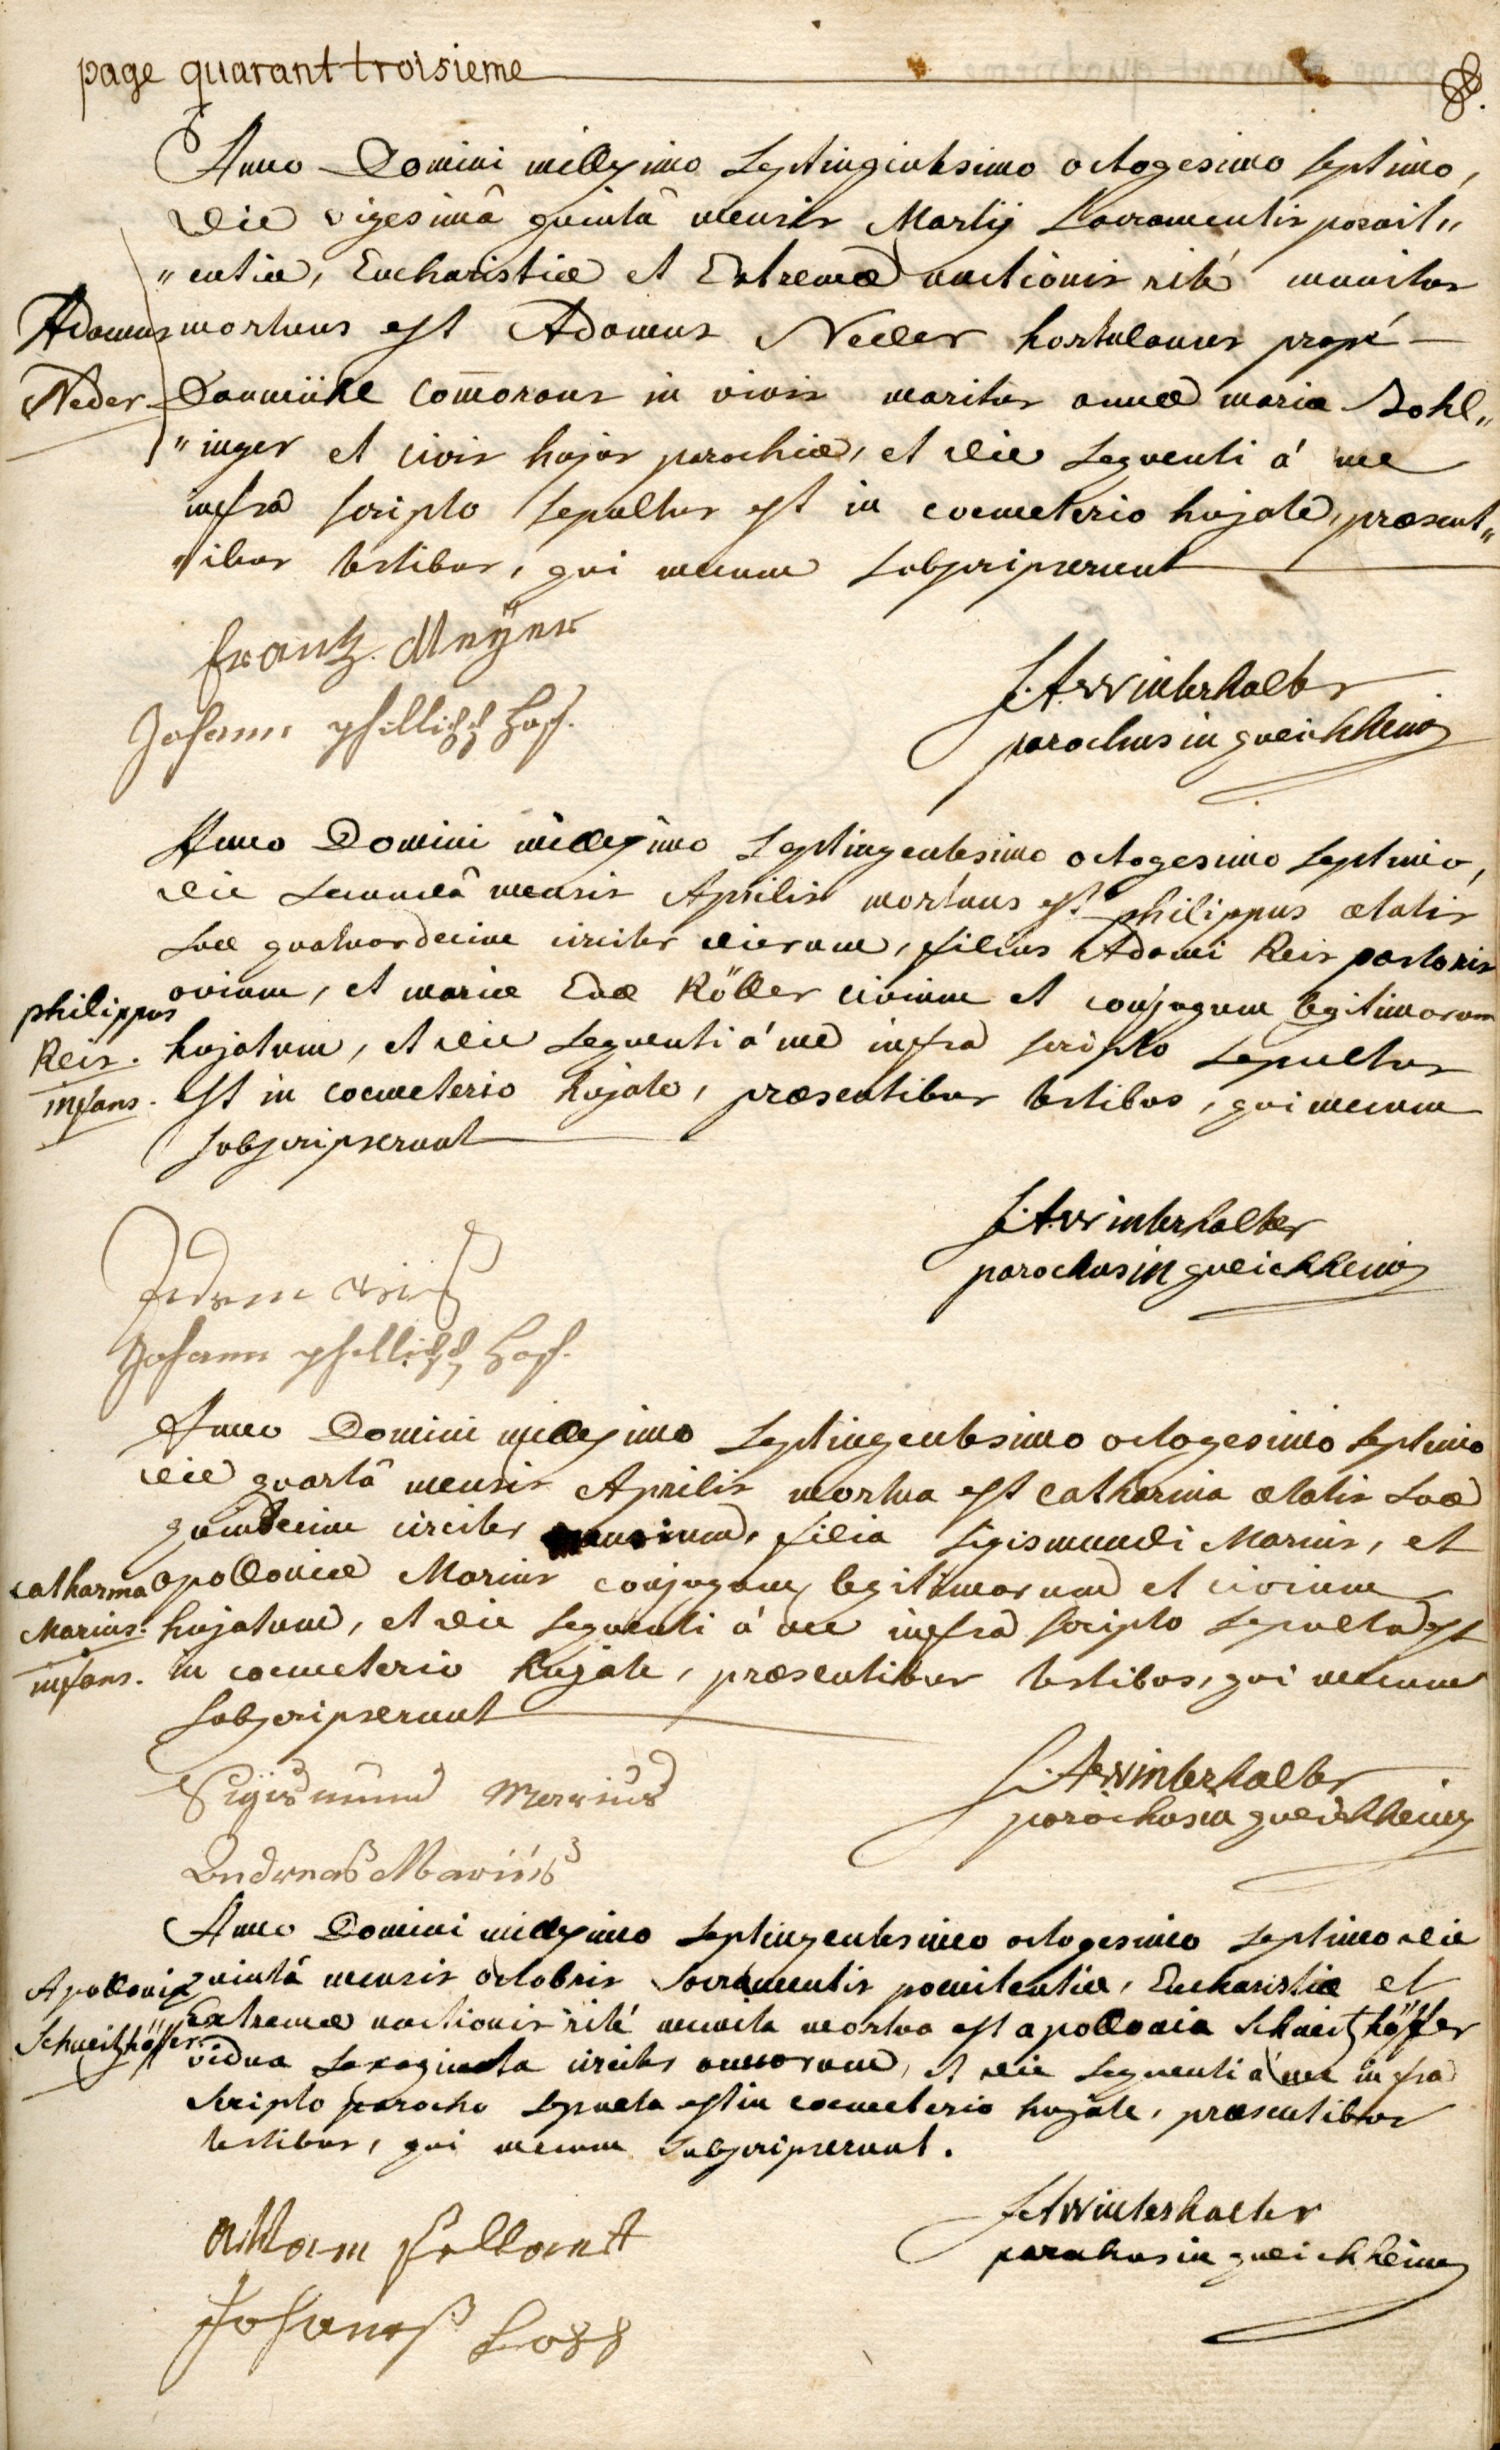 page quarant troisieme
Anno Domini millesimo Septingintesimo octogesimo septimo,
die vigesimâ quintâ mensis Martij Sacramentis poenit„
„entiæ, Eucharistiæ et Extremæ unctionis rité munitus
Adamus
Neder
mortuus est Adamus Neder hortulanus propé
Danmühl com̄orans in vivis maritus annæ mariæ Bohl„
„inger et civis hujus parochiæ, et die sequenti á me
infra scripto sepultus est in coemeterio hujate, præsent„
„ibus testibus, qui mecum subscripserunt
frantz. Meÿer
Johann phillipp Hoff.
J. A. Winterhalter
parochus in gleichheim
Anno Domini millesimo Septingentesimo octogesimo septimo,
die secundâ mensis Aprilis mortuus est philippus ætatis
suæ quatuordecim circiter dierum, filius Adami Reis pastoris
philippus
Reis.
infans.
ovium, et mariæ Evæ Röller civium et conjugum legitimorum
hujatum, et die sequenti á me infra scripto sepultus
est in coemeterio hujate, præsentibus testibus, qui mecum
subscripserunt
J. A. Winterhalter
parochus in gleichheim
Adam reis
Johann phillipp Hoff.
Anno Domini millesimo Septingentesimo octogesimo septimo
die quartâ mensis Aprilis mortua est catharina ætatis suæ
quindecim circiter mensium, filia Sigismundi Marius, et
catharina
Marius.
infans.
apolloniæ Marius conjugum legitimorum et civium
hujatum, et die sequenti á me infra scripto sepulta est
in coemeterio hujate, præsentibus testibus, qui mecum
subscripserunt
Sigismund Marius
Andreas Marius
J. A. Winterhalter
parochus in gleichheim
Anno Domini millesimo septingentesimo octogesimo septimo die
Apollonia
Schneitzhöffer
quintâ mensis octobris Sacramentis poenitentiæ, Eucharistiæ et
Extremæ unctionis rité munita mortua est apollonia Schneitzhöffer
vidua sexaginta circiter annorum, et die sequenti á me infra
scripto parocho sepulta est in coemeterio hujate, præsentibus
testibus, qui mecum subscripserunt.
J A Winterhalter
parochus in gleichheim
Johaneß